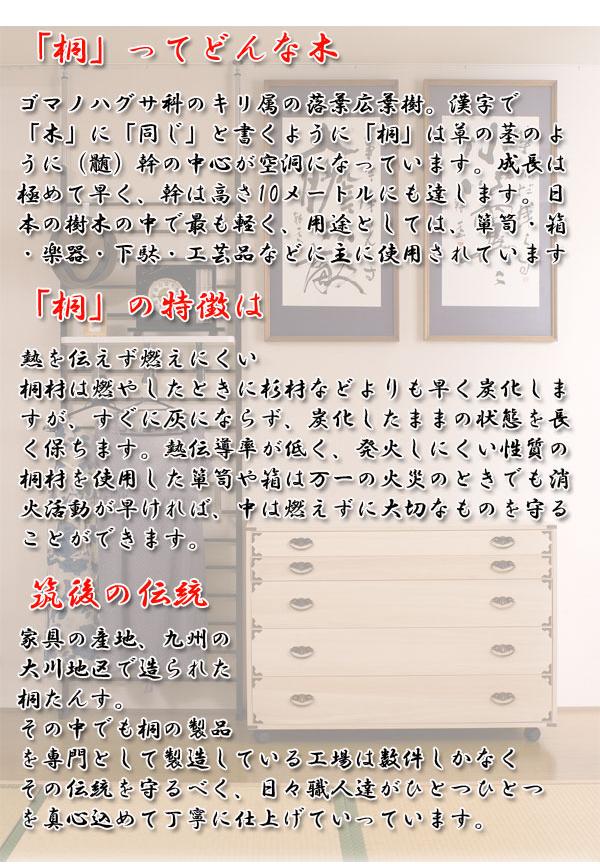 「桐」ってどんな木
ゴマノハグサ科のキリ属の落葉広葉樹。漢字で
「木」に「同じ」と書くように「桐」は草の茎のよ
うに（髄）幹の中心が空洞になっています。成長は
極めて早く、幹は高さ10メートルにも達します。日
本の樹木の中で最も軽く、用途としては、箪笥・箱
・楽器・下駄・工芸品などに主に使用されています
「桐」の特徴は
熱を伝えず燃えにくい
桐材は燃やしたときに杉材などよりも早く炭化しま
すが、すぐに灰にならず、炭化したままの状態を長
く保ちます。熱伝導率が低く、発火しにくい性質の
桐材を使用した箪笥や箱は万一の火災のときでも消
火活動が早ければ、中は燃えずに大切なものを守る
ことができます。
筑後の伝統
家具の産地、九州の
大川地区で造られた
桐たんす。
その中でも桐の製品
を専門として製造している工場は数件しかなく
その伝統を守るべく、日々職人達がひとつひとつ
を真心込めて丁寧に仕上げていっています。